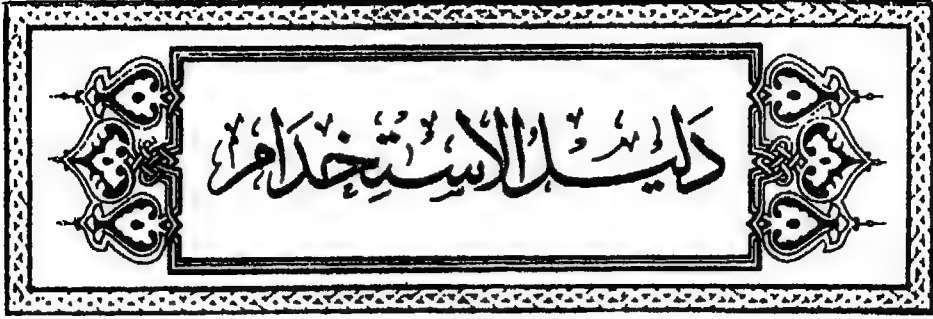 دليل الاستخدام